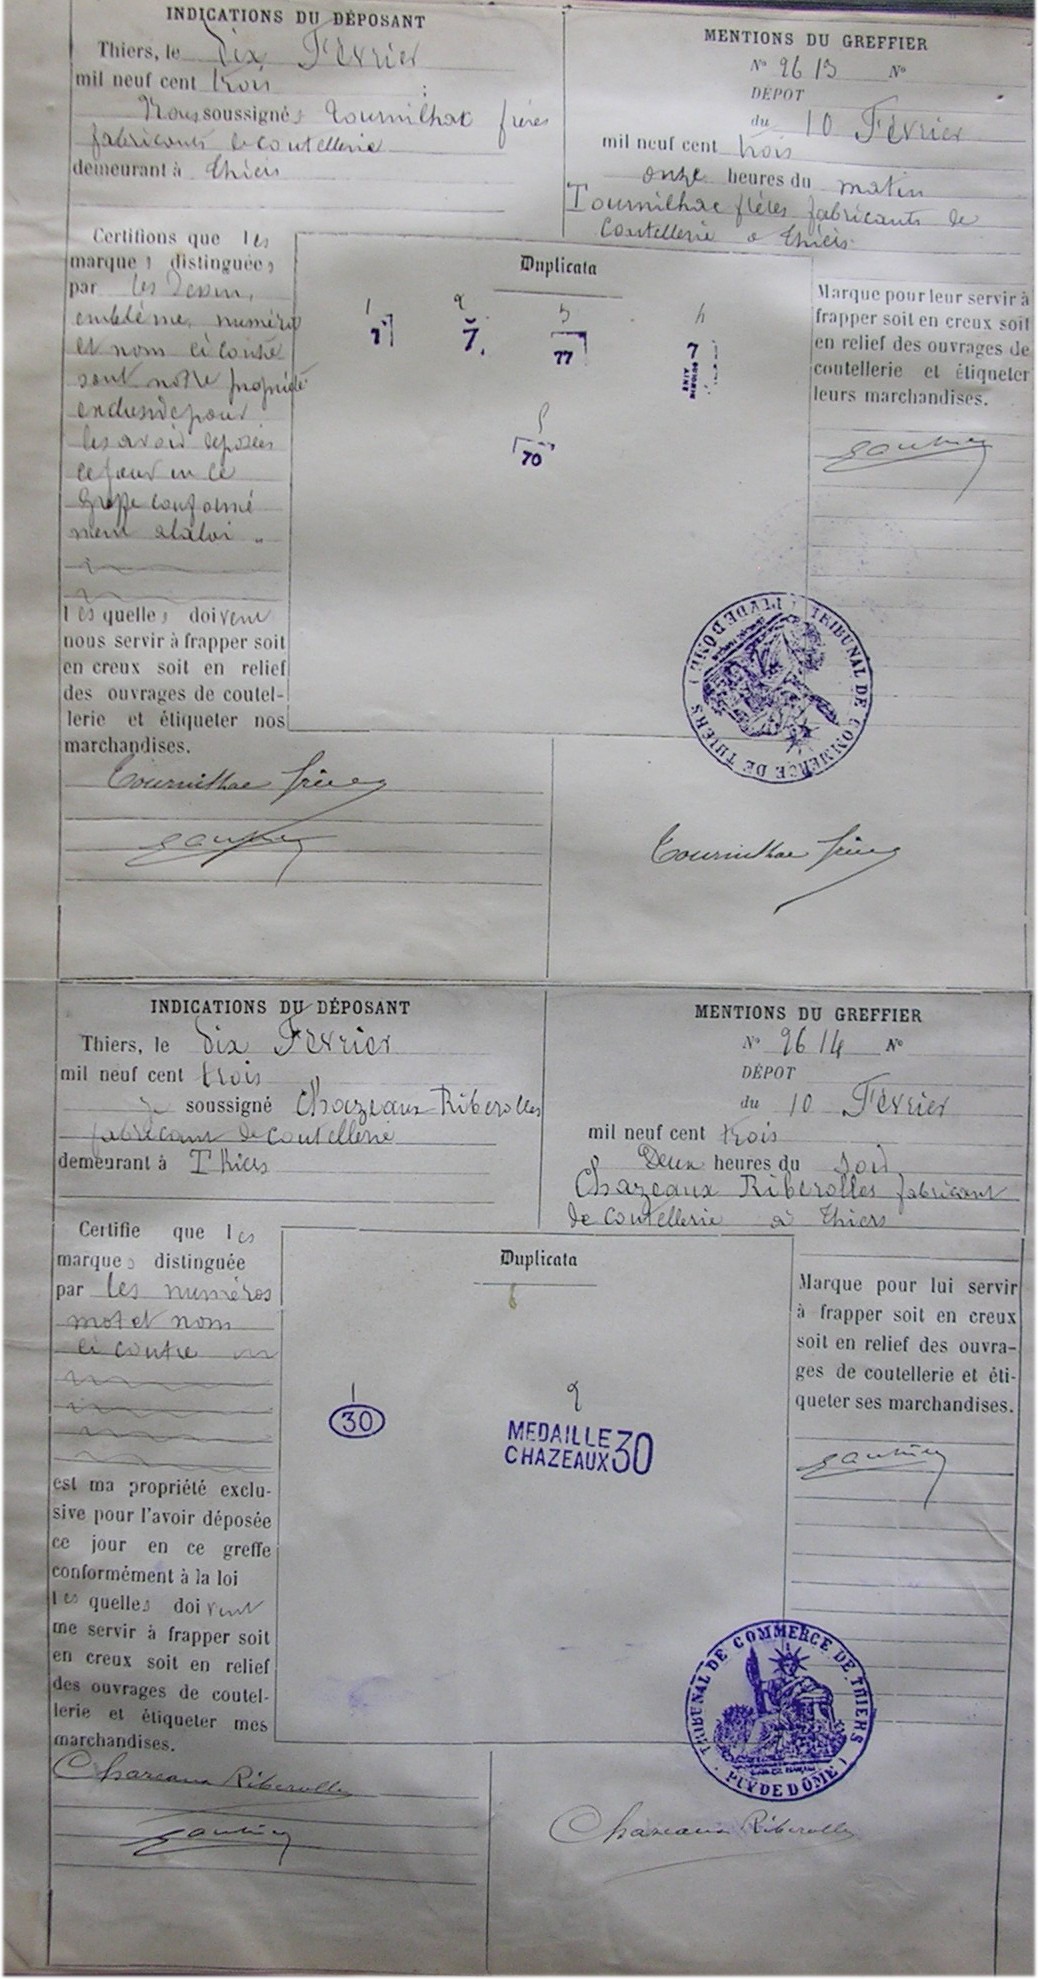 INDICATIONS DU DÉPOSANT
Thiers, le Dix Février
mil neuf cent trois
Nous soussignés Tournilhac frères
fabricants de coutellerie
demeurant à Thiers
MENTIONS DU GREFFIER
N° 2613 N°
DÉPOT
du 10 Février
mil neuf cent trois
onze heures du matin
Tournilhac frères fabricants de
Coutellerie à Thiers
Certifions que les
marques distinguées
par les Dessin,
emblème, numéros
et nom ci contre
sont notre propriété
exclusive pour
les avoir déposées
ce jour en ce
Greffe conformé
ment à la loi
Lesquelles doivent
nous servir à frapper soit
en creux soit en relief
des ouvrages de coutel-
lerie et étiqueter nos
marchandises.
Tournilhac frères
Duplicata
1 2 3 4
7 7 77 7
AINÉ
5
70
Marque pour leur servir à
frapper soit en creux soit
en relief des ouvrages de
coutellerie et étiqueter
leurs marchandises.
TRIBUNAL DE COMMERCE DE THIERS
(PUY DE DÔME)
Tournilhac frères
INDICATIONS DU DÉPOSANT
Thiers, le Dix Février
mil neuf cent trois
Je soussigné Chazeaux Riberolles
fabricant de coutellerie
demeurant à Thiers
MENTIONS DU GREFFIER
N° 2614 N°
DÉPOT
du 10 Février
mil neuf cent trois
Deux heures du soir
Chazeaux Riberolles fabricant
de coutellerie à Thiers
Certifie que les
marques distinguée
par les numéros
mot et nom
ci contre
est ma propriété exclu-
sive pour l'avoir déposée
ce jour en ce greffe
conformément à la loi
Lesquelles doivent
me servir à frapper soit
en creux soit en relief
des ouvrages de coutel-
lerie et étiqueter mes
marchandises.
Chazeaux Riberolles
Duplicata
1 2
30
MEDAILLE
CHAZEAUX 30
Marque pour lui servir
à frapper soit en creux
soit en relief des ouvra-
ges de coutellerie et éti-
queter ses marchandises.
TRIBUNAL DE COMMERCE DE THIERS
(PUY DE DÔME)
Chazeaux Riberolles